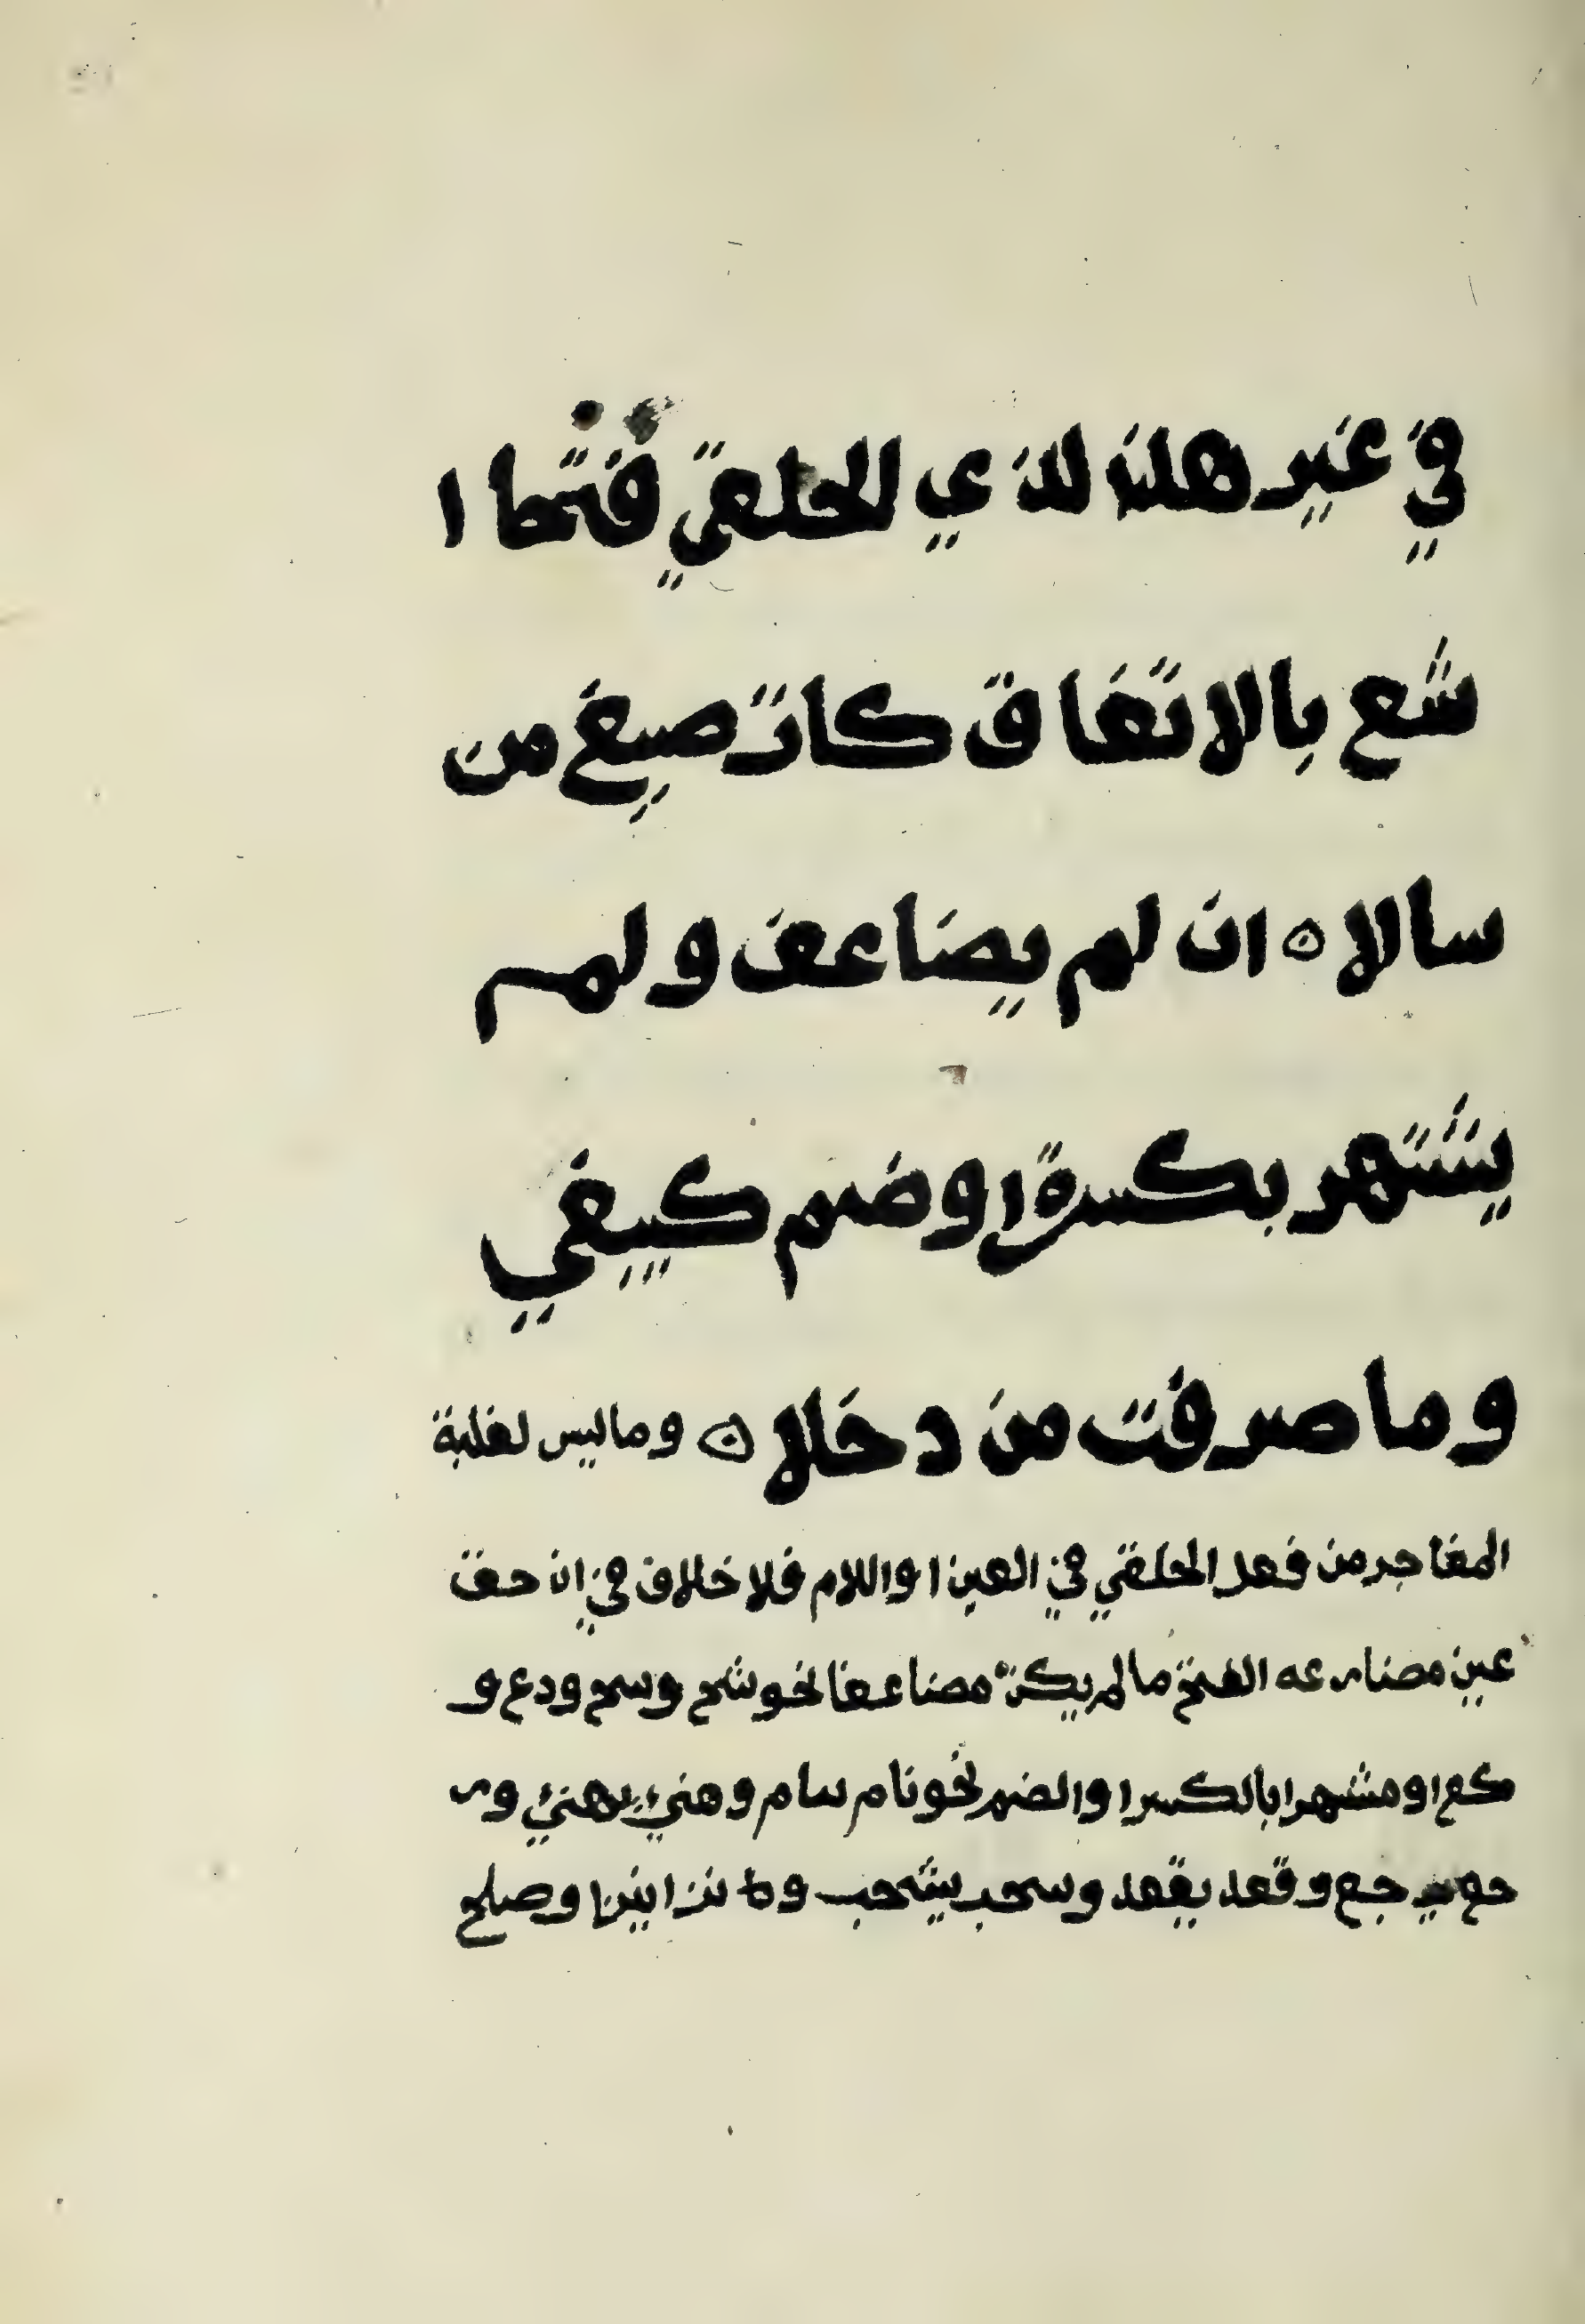 في غير هذا لذي الحلقي فتحا ا
شع بالاتفاق كات صيغ من
سالا ۞ ان لم يضاعف ولم
يشتهر بكسرة اوضم كيبغي
وما صرفت من دخلا ۞ وما ليس لغلبة
المفاخر من فعل الحلقي في العين او اللام فلا خلاف في ان حق
عين مضارعه الفتح ما لم يكن مضاعفا نحو شح وسح ودع و
كع او مشهرا بالكسر او الضم نحو نام وهنيء يهنيء ور
جع يرجع وقعد يقعد وسحب يشحب وصلح